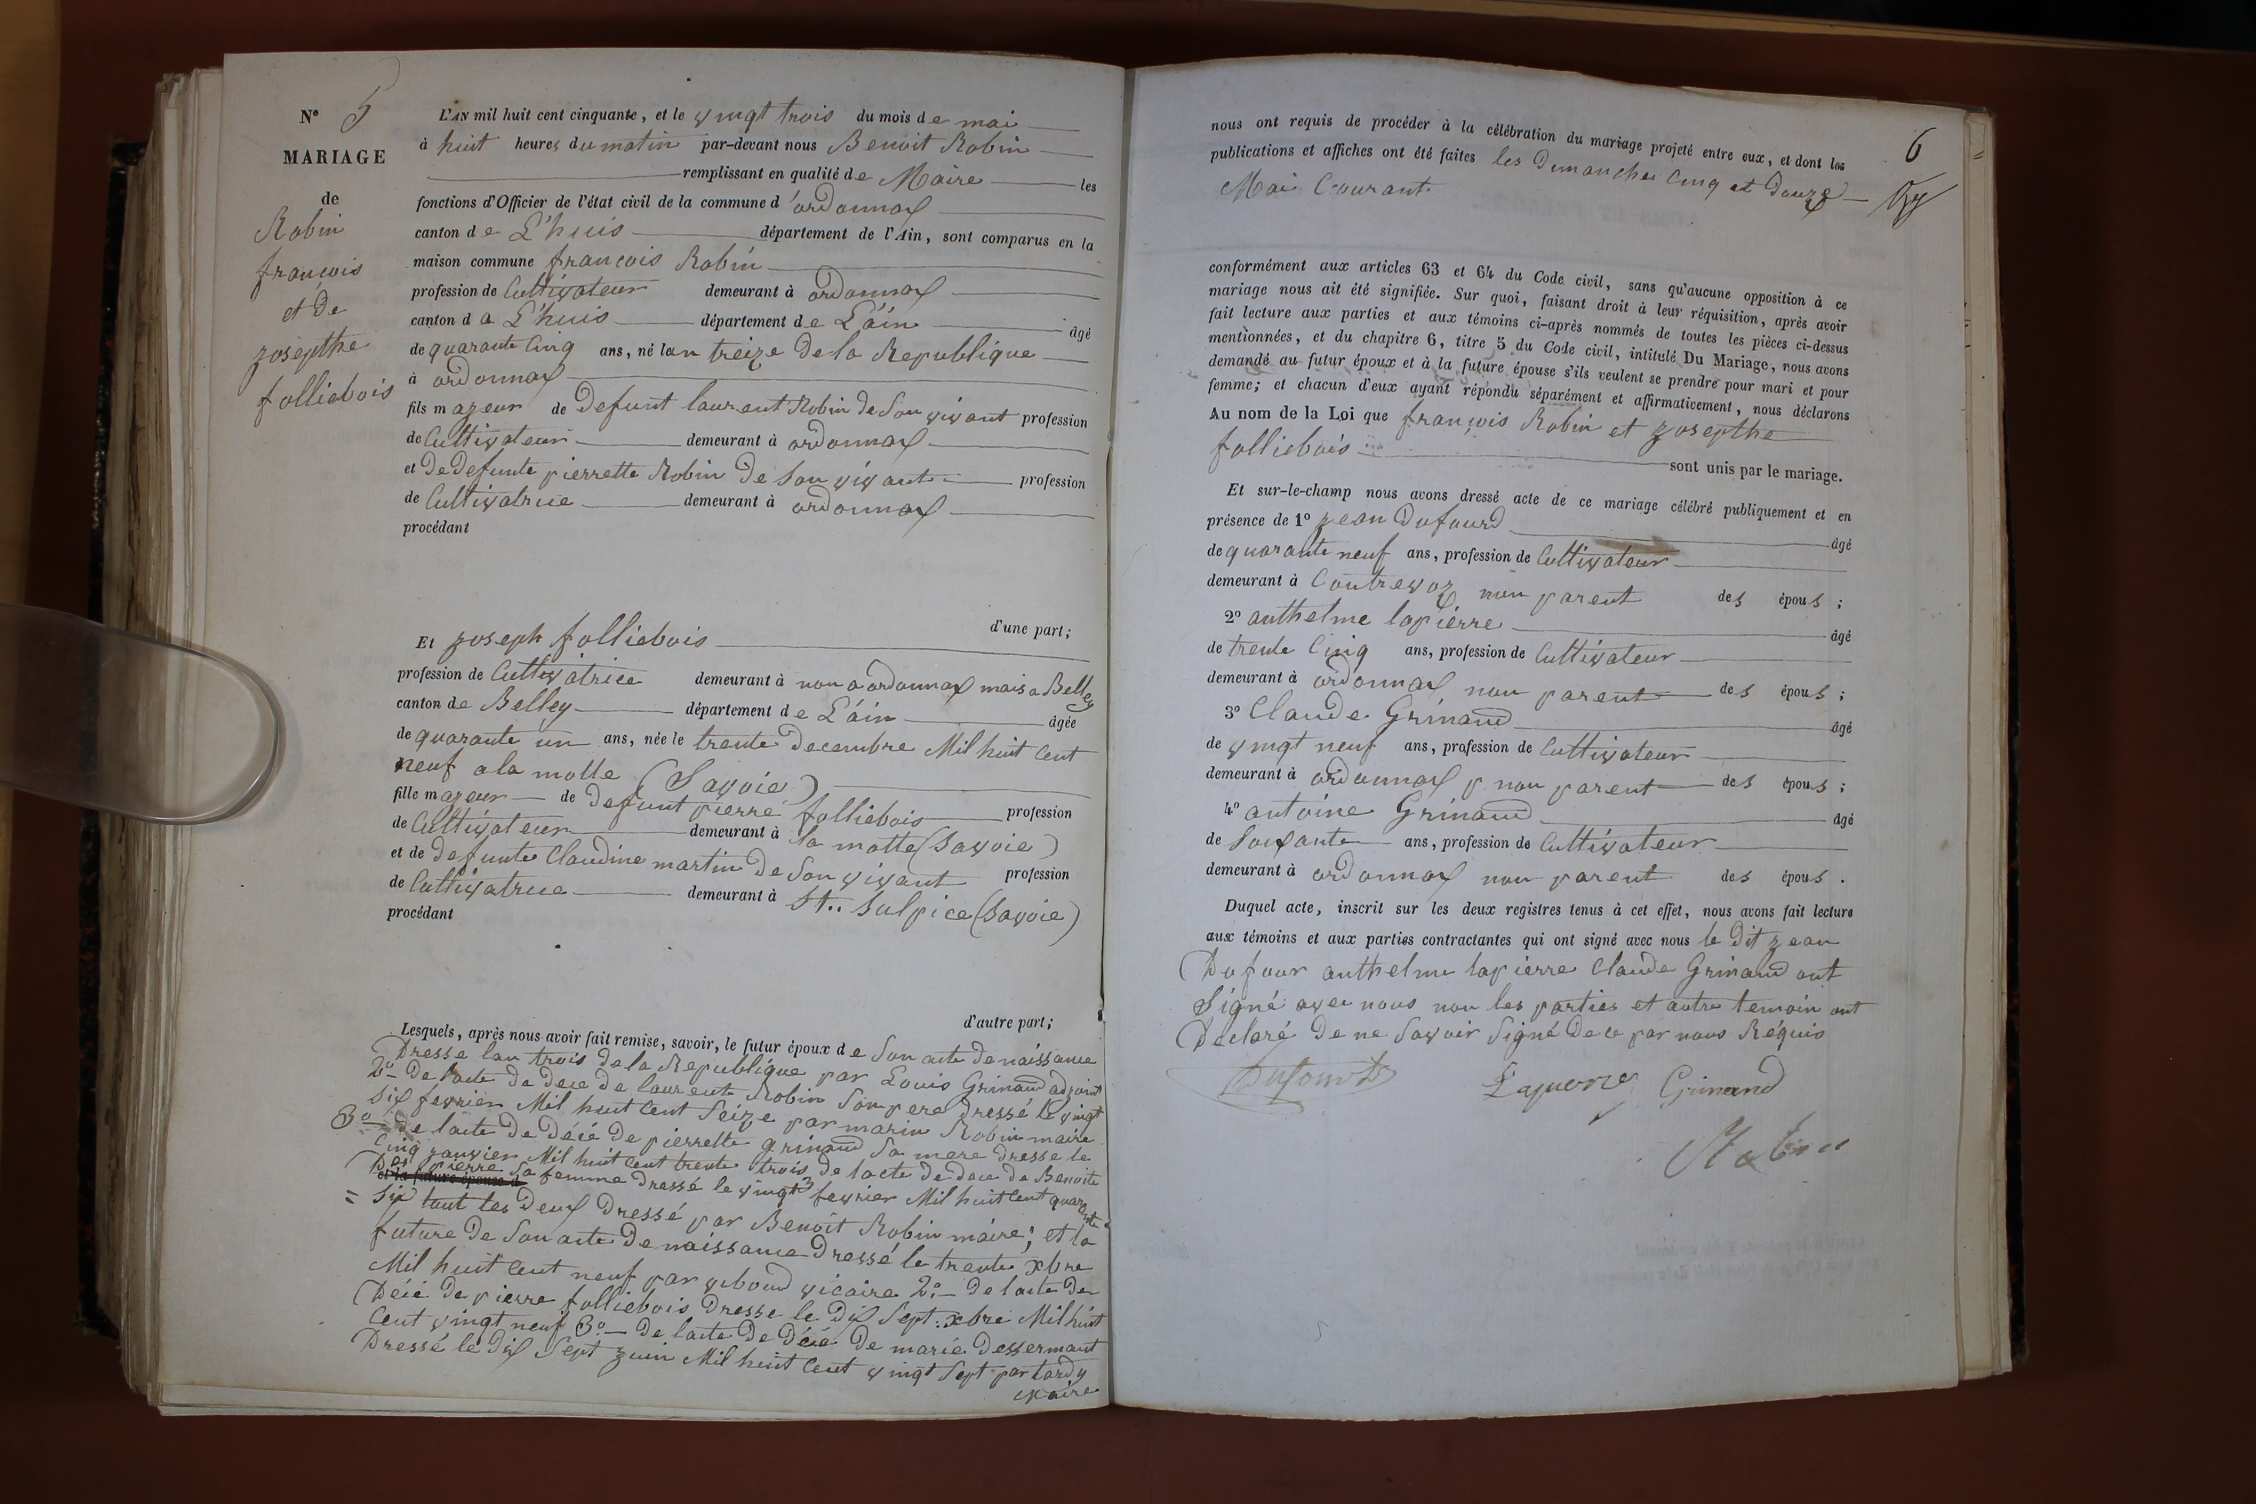 N° 5
MARIAGE
de
Robin
françois
et de
zosepthe
folliebois
L'AN mil huit cent cinquante, et le vingt trois du mois de mai
à huit heures du matin par-devant nous Benoit Robin
remplissant en qualité de Maire les
fonctions d'Officier de l'état civil de la commune d'ordonnax
canton de L'huis département de l'Ain, sont comparus en la
maison commune françois Robin
profession de Cultivateur demeurant à ordonnax
canton d a L'huis département de L'áin âgé
de quarante Cinq ans, né lan treize de la Republique
à ordonnax
fils mazeur de defunt laurent Robin de Son vivant profession
de Cultivateur demeurant à ordonnax
et de defunte pierrette Robin de Son vivant profession
de Cultivatrice demeurant à ordonnax
procédant
d'une part;
Et zoseph folliebois
profession de Cultivatrice demeurant à non a ordonnax mais a Belley
canton de Belley département de L'áin âgée
de quarante un ans, née le trente decembre Mil huit Cent
neuf a la motte (Savoie)
fille mazeur de defunt pierre folliebois profession
de Cultivateur demeurant à la motte (Savoie)
et de defunte Claudine martin de Son vivant profession
de Cultivatrice demeurant à St.. Sulpice (Savoie)
procédant
d'autre part;
Lesquels, après nous avoir fait remise, savoir, le futur époux de Son acte de naissance
Dresse lan trois de la Republique par Louis Grinand adzoint
2° De lacte de dece de laurent Robin Son pere dressé le vingt
Six fevrier Mil huit Cent Seize par marin Robin maire
3° de lacte de décé de pierrette grinand Sa mere dresse le
Cinq zanvier Mil huit Cent trente trois de lacte de dece de Benoite
pierre Sa femme dressé le vingt 3 fevrier Mil huit Cent quarante
= Six tout les deux dressé par Benoit Robin maire; et la
future de Son acte de naissance dressé le trente xbre
Mil huit Cent neuf par vicaire 2° De lacte de
Décé de pierre folliebois dresse le dix Sept xbre Mil huit
Cent vingt neuf 3° De lacte de décé de marie dessermant
Dressé le dix Sept zuin Mil huit Cent vingt Sept par tardy
Maire
6
nous ont requis de procéder à la célébration du mariage projeté entre eux, et dont les
publications et affiches ont été faites les Dimanches Cinq et Douze
Mai Courant
conformément aux articles 63 et 64 du Code civil, sans qu'aucune opposition à ce
mariage nous ait été signifiée. Sur quoi, faisant droit à leur réquisition, après avoir
fait lecture aux parties et aux témoins ci-après nommés de toutes les pièces ci-dessus
mentionnées, et du chapitre 6, titre 5 du Code civil, intitulé Du Mariage, nous avons
demandé au futur époux et à la future épouse s'ils veulent se prendre pour mari et pour
femme; et chacun d'eux ayant répondu séparément et affirmativement, nous déclarons
Au nom de la Loi que françois Robin et zosepthe
folliebois
sont unis par le mariage.
Et sur-le-champ nous avons dressé acte de ce mariage célébré publiquement et en
présence de 1° zean Dufourd âgé
de quarante neuf ans, profession de Cultivateur
demeurant à Contrevoz non parent des épous;
2° anthelme lapierre âgé
de trente Cinq ans, profession de Cultivateur
demeurant à ordonnax non parent des épous;
3° Claude Grinand âgé
de vingt neuf ans, profession de Cultivateur
demeurant à ordonnax p non parent des épous;
4° antoine Grinand âgé
de Soixante ans, profession de Cultivateur
demeurant à ordonnax non parent des épous.
Duquel acte, inscrit sur les deux registres tenus à cet effet, nous avons fait lecture
aux témoins et aux parties contractantes qui ont signé avec nous le dit zean
Dufour anthelme lapierre Claude Grinand ont
Signé avec nous non les parties et autre temoin ont
Declaré de ne Savoir Signé de ce par nous Réquis
Dufourd Lapierre Grinand
Robin